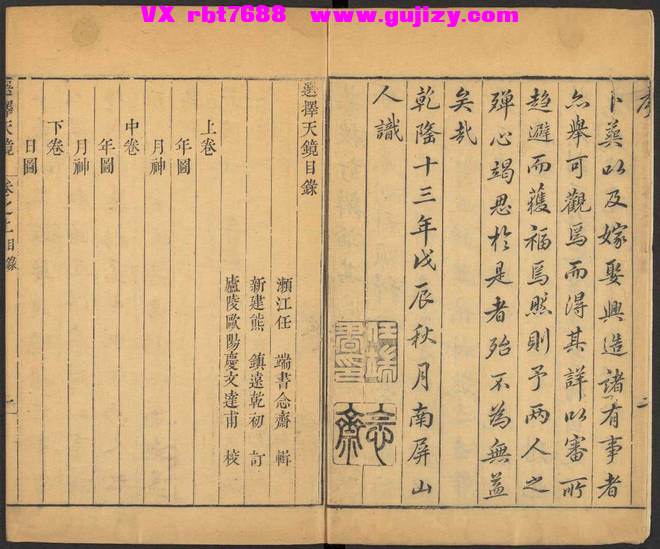 VX rbt7688 www.gujizy.com
序
卜葬以及嫁娶興造諸有事者
亦舉可觀焉而得其詳以審所
趨避而獲福焉然則予兩人之
殫心竭思於是者殆不為無益
矣哉
乾隆十三年戊辰秋月南屏山
人識
二
選擇天鏡目錄
瀨江任 端書念齋 輯
新建熊 鎮遠乾初 訂
廬陵歐陽慶文達甫 校
上卷
年圖
月神
中卷
年圖
月神
下卷
日圖
選擇天鏡 卷之上目錄
一